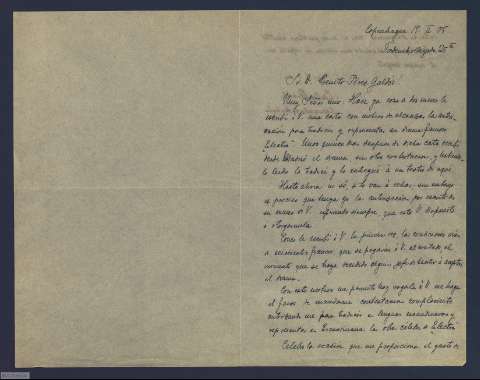 Copenhague 17 II 05
Sr. D. Benito Pérez Galdós!
Muy Señor mio: Hace ya cosa de dos meses le
escribí á V. una carta con motivo de alcanzar la auto-
rización para traducir y representar su drama famoso
"Electra". Unos quince dias despues de dicha carta recibí
desde Madrid el drama sin otra contestacion, y habiendo-
lo leido lo traducí y lo entregué á un teatro de aquí.
Hasta ahora no sé, si lo van á echar, sin embargo
es preciso que tenga ya la autorización por escrito de
su mano de V. esperando siempre, que esté V. dispuesto
á otorgarmela.
Como le escribí á V. la primera vez, las condiciones serán
de francos, que se pagarán á V. al contado, el
momento que se haya decidido algun teatro á aceptar
el drama.
Con este motivo me permito hoy rogarle á V. me haga
el favor de mandarme contestacion
autorizando me para traducir á lenguas escandinavas y
representar en Escandinavia la obra célebre de "Electra".
Celebro la ocasion que me proporciona el gusto de